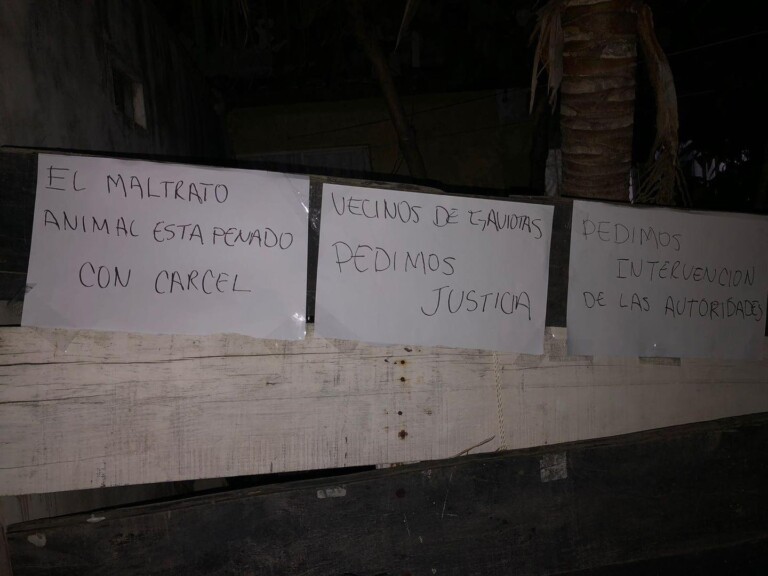 EL MALTRATO
ANIMAL ESTA PENADO
CON CARCEL
VECINOS DE GAVIOTAS
PEDIMOS
JUSTICIA
PEDIMOS
INTERVENCION
DE LAS AUTORIDADES